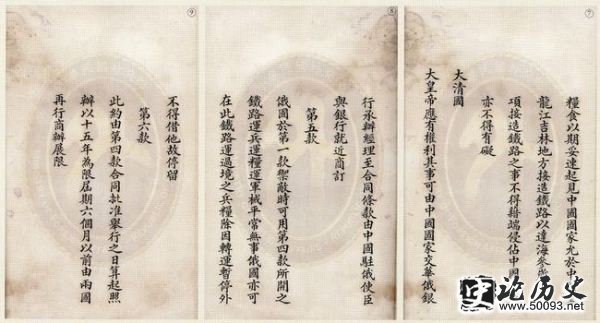 ⑦
糧食以期妥速起見中國國家允於中
龍江吉林地方接造鐵路以達海參
項接造鐵路之事不得藉端侵佔中
亦不得有礙
大清國
大皇帝應有權利其事可由中國國家交華俄銀
⑧
行承辦經理至合同條款由中國駐俄使臣
與銀行就近商訂
第五款
俄國於第一款禦敵時可用第四款所開之
鐵路運兵運糧運軍械平常無事俄國亦可
在此鐵路運過境之兵糧除因轉運暫停外
⑨
不得借他故停留
第六款
此約由第四款合同批准舉行之日算起照
辦以十五年為限屆期六個月以前由兩國
再行商辦展限
论历史
www.50093.net